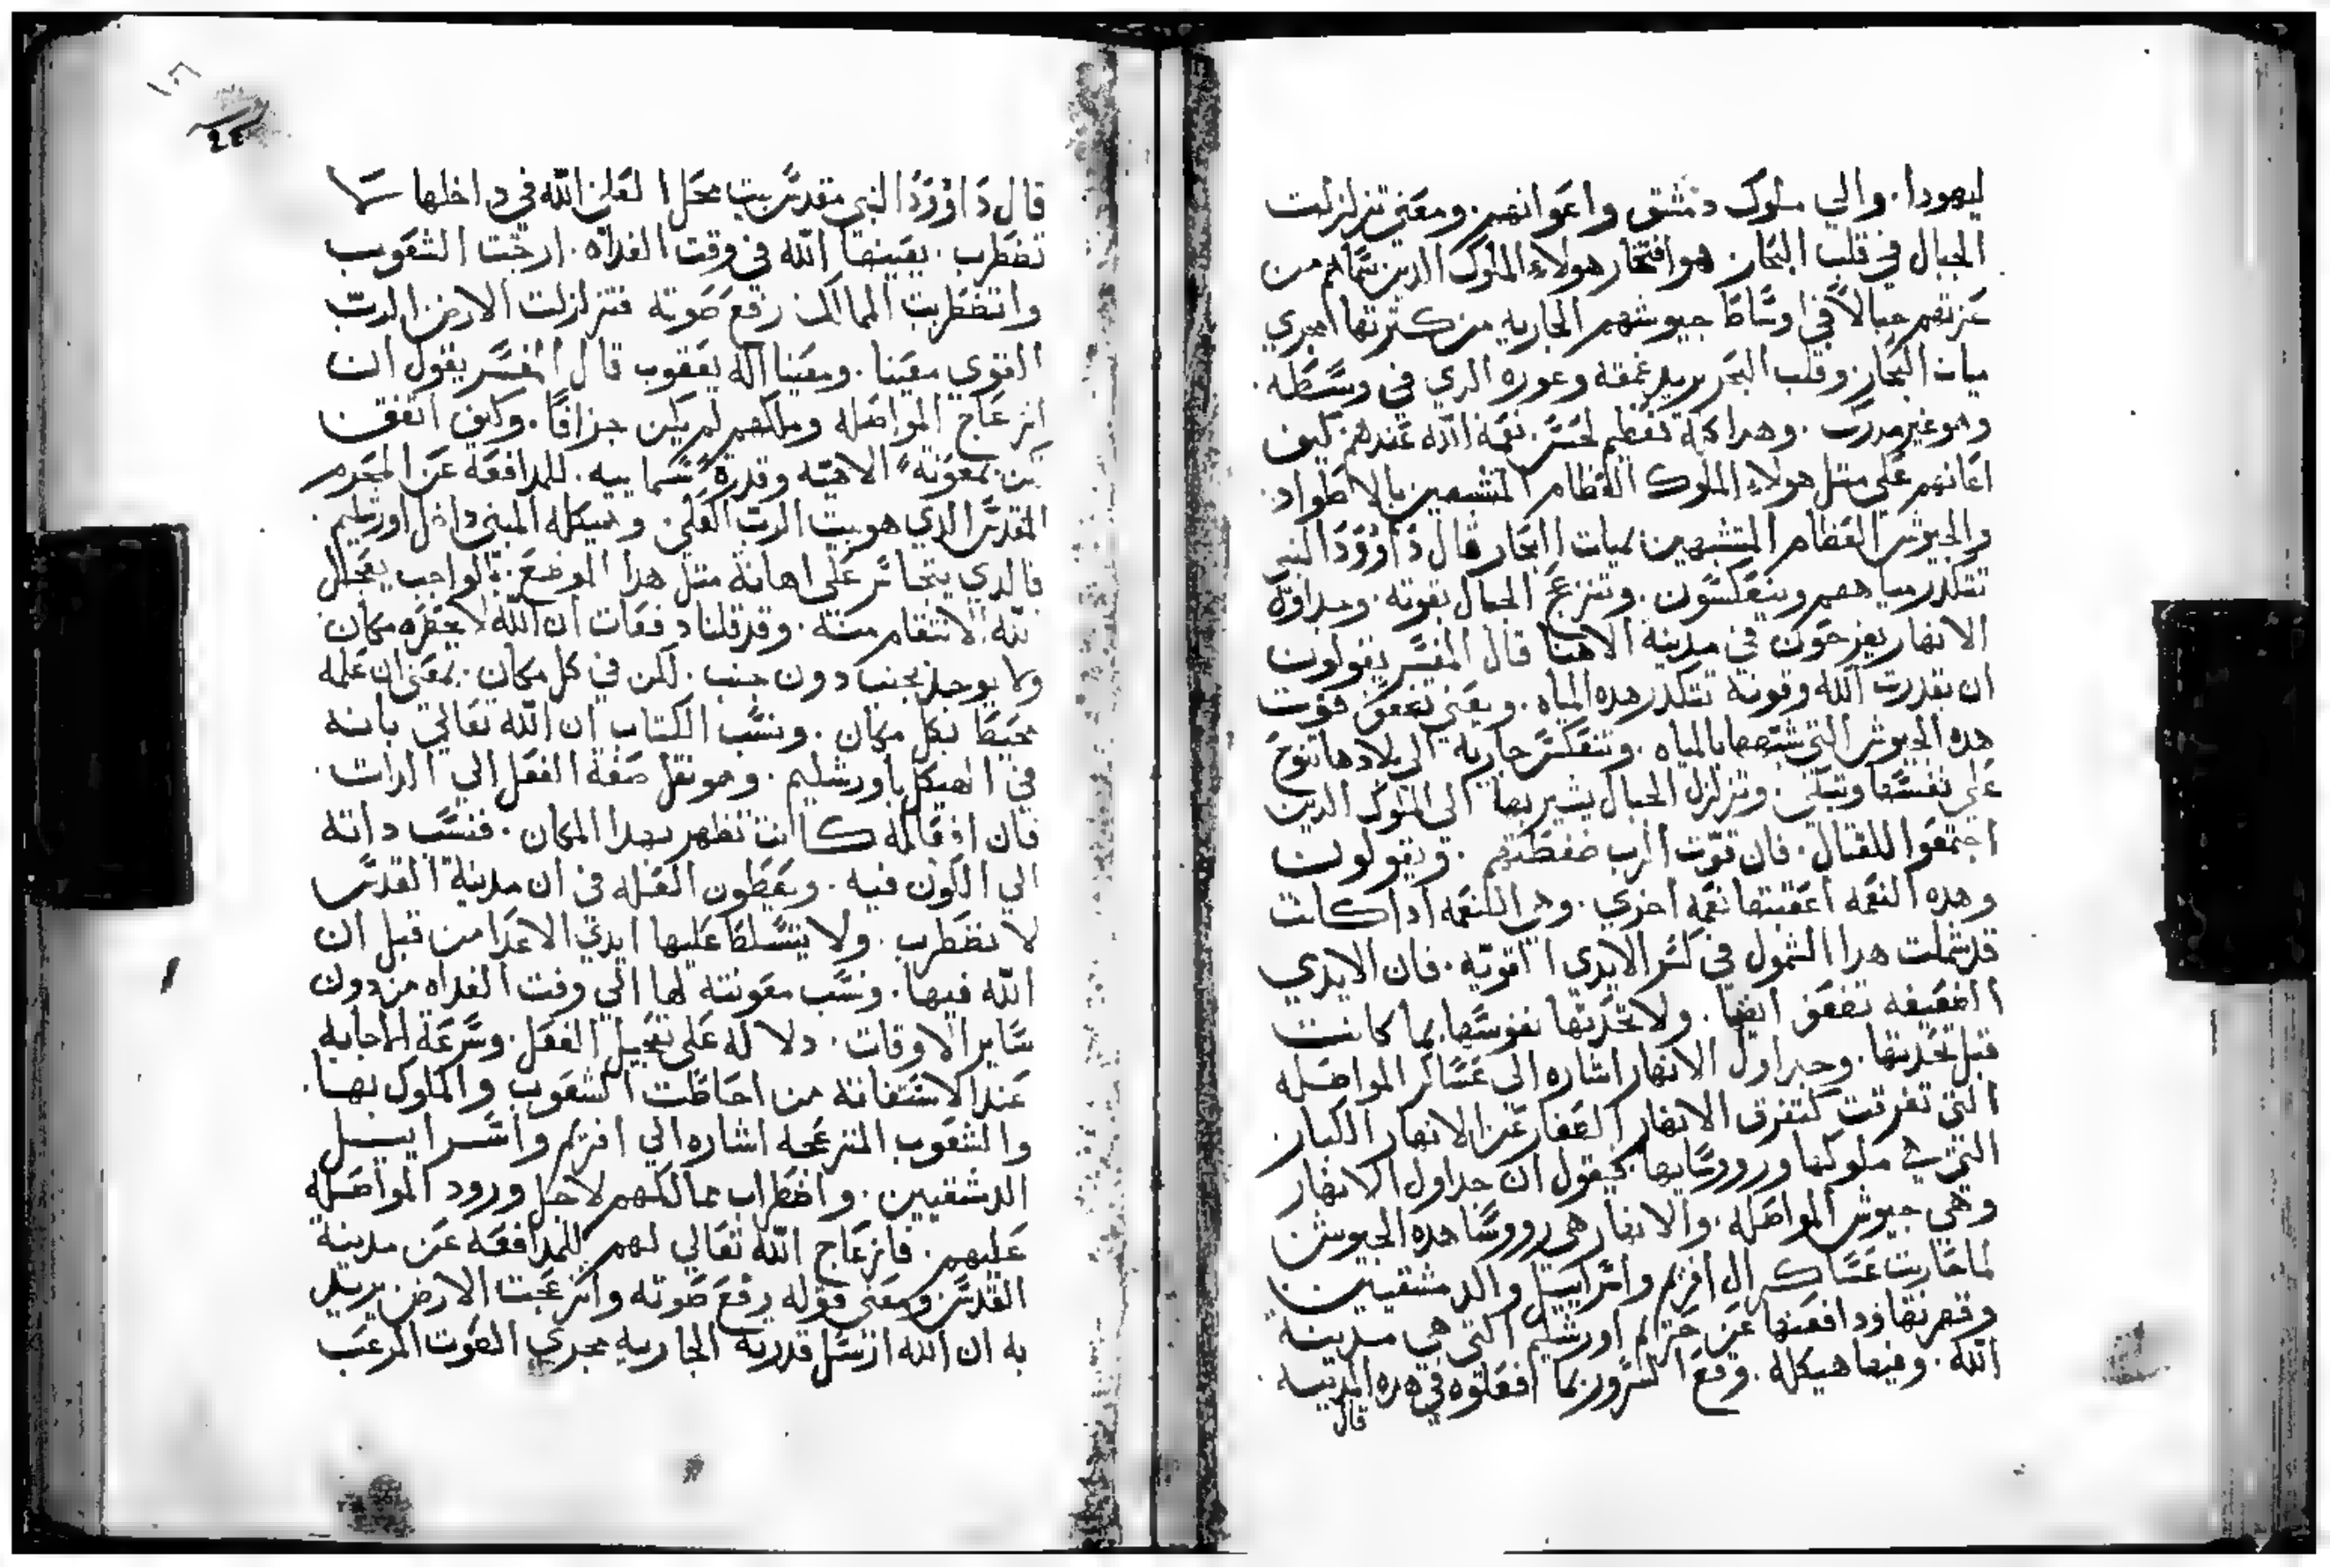 ليهودا. والي ملوك دمشق واعوانهم. ومعني تتزلزلت
الجبال في قلب البحار. هو افتخار هولاء الملوك الدين سماهم من
عزتهم جبالاً في اوساط جيوشهم الجاريه من كثرتها مجري
ميات البحار وقلب البحر يريد عمقه وغوره الدي في وسطه.
وهو غير مدرب. وهدا كله تعظيم لحسن نعمة الله عندهم كيف
اعانهم علي مثل هولاء الملوك العظام المشبهين بالاطواد.
والجيوش العظام المتشبهين بميات البحار قال داوود النبي
تتكدر مياههم وينعكسون. وتنزعج الجبال بقوته. وجداول
الانهار يفرحون في مدينة الاهنا قال المفسر يقولون
ان بقدرت الله وقوته تتكدر هده المياه. ويعني تضعف قوت
هده الجيوش التي شبهها بالمياه. وتنعكس جاريه الي بلادها تنوح
علي نفسها وتبكي. وتزلزل الجبال يشير بها الي الملوك الدين
اجتمعوا للقتال. فان قوت الرب ضغطتهم. ويقولون
وهده النعمه اعقبتها نعمه اخري. وهي النعمه ادا كانت
قد شملت هدا الشمول في كسر الايدي القويه. فان الايدي
الضعيفه تضعف ايضا. ولا تحدتها نفوسها بما كانت
قبل تحدتها. وجداول الانهار اشاره الي عساكر المواصله
التي تفرقت كتفرق الانهار الصغار عن الانهار الكبار
التي هي ملوكها ورووسايها. فيقول ان جداول الانهار
وهي جيوش المواصله. والانهار هي رووسا هده الجيوش
لما حاربت عساكر ال افريم واسراييل والدمشقيين
وقهرتها ودافعتها عن حريم اورشليم التي هي مدينة
الله. وفيها هيكله. وقع السرور بما افعلوه في هده المدينه.
قال
قال داوود النبي مقدس بيت محل العلي الله في داخلها لا
تضطرب. يعينها الله في وقت الغداه. ارتجت الشعوب
واتضطربت الممالك رفع صوته فتزلزلت الارض الرب
القوي معنا. ومعينا اله يعقوب قال المفسر يقول ان
انزعاج المواصله وملكهم لم يكن جزافًا. وكيف اتفق
لكن بمعونة الاهيه وقدرة سماييه. للمدافعة عن الحرم
المقدس الدي هو بيت الرب العلي. وهيكله المبني داخل اورشليم.
فالدي يتجاسر علي اهانة مثل هدا الموضع. بالواجب يعجل
الله الانتقام منه. وقد قلنا دفعات ان الله لا يحصره مكان
ولا يوجد بجنب دون جنب. لكن في كل مكان. بمعني ان علمه
محيط بكل مكان. ونسب الكتاب ان الله تعالي بانه
في الهيكل باورشليم. وهو نقل صفة الفعل الي الدات.
فان افعاله كانت تظهر بهدا المكان. فنسب داته
الي الكون فيه. ويعطون العله في ان مدينة القدس
لا تضطرب. ولا يتسلط عليها ايدي الاعدا من قبل ان
الله فيها. ونسب معونته لها الي وقت الغداه من دون
ساير الاوقات. دلاله علي تعجيل الفعل. وسرعة الاجابه
عند الاستغاثه من احاطت الشعوب والملوك بها.
والشعوب المنزعجه اشاره الي افريم واسراييل
الدمشقيين. واضطراب ممالكهم لاجل ورود المواصله
عليهم. فانزعاج الله تعالي لهم للمدافعه عن مدينة
القدس ومعني قوله رفع صوته وانزعجت الارض يريد
به ان الله ارسل قدرته الجاريه مجري الصوت المرعب